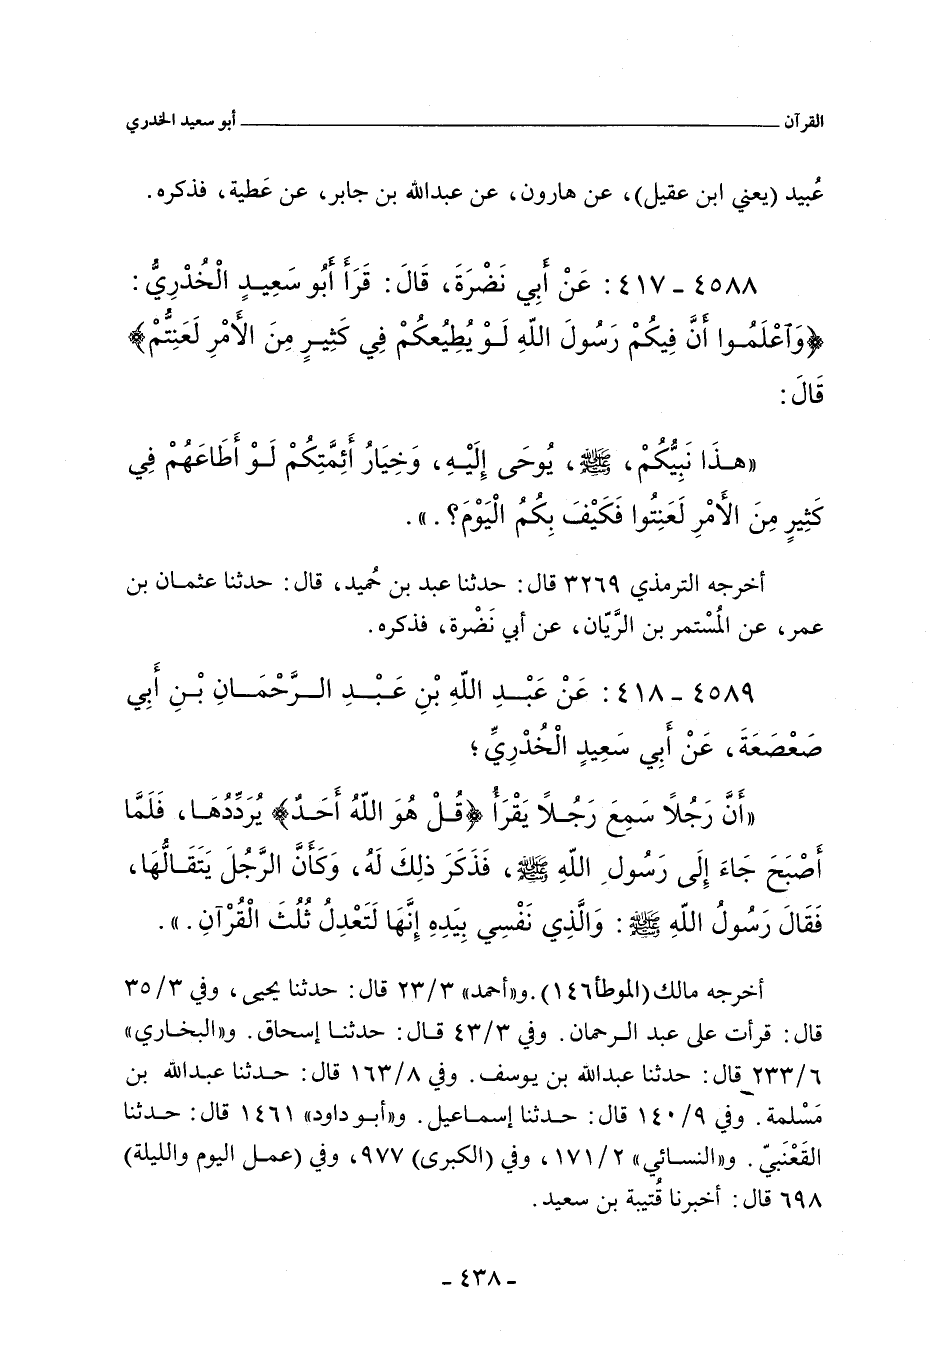 القرآن ـــــــــــــــــــــــــــــــــــــــــــــــ أبو سعيد الخدري
عُبيد (يعني ابن عقيل)، عن هارون، عن عبدالله بن جابر، عن عَطية، فذكره.
٤٥٨٨ - ٤١٧: عَنْ أَبِي نَضْرَةَ، قَالَ: قَرَأَ أَبُو سَعِيدٍ الْخُدْرِيُّ:
﴿وَٱعْلَمُوا أَنَّ فِيكُمْ رَسُولَ اللّهِ لَوْ يُطِيعُكُمْ فِي كَثِيرٍ مِنَ الأَمْرِ لَعَنِتُّمْ﴾
قَالَ:
«هـذَا نَبِيُّكُمْ، ﷺ، يُوحَى إِلَيْهِ، وَخِيَارُ أَئِمَّتِكُمْ لَوْ أَطَاعَهُمْ فِي
كَثِيرٍ مِنَ الأَمْرِ لَعَنِتُوا فَكَيْفَ بِكُمُ الْيَوْمَ؟.».
أخرجه الترمذي ٣٢٦٩ قال: حدثنا عبد بن حُميد، قال: حدثنا عثمان بن
عمر، عن المُسْتمر بن الرَّيّان، عن أبي نَضْرة، فذكره.
٤٥٨٩ - ٤١٨: عَنْ عَبْدِ اللّهِ بْنِ عَبْدِ الرَّحْمَانِ بْنِ أَبِي
صَعْصَعَةَ، عَنْ أَبِي سَعِيدٍ الْخُدْرِيِّ؛
«أَنَّ رَجُلاً سَمِعَ رَجُلاً يَقْرَأُ ﴿قُلْ هُوَ اللّهُ أَحَدٌ﴾ يُرَدِّدُهَا، فَلَمَّا
أَصْبَحَ جَاءَ إِلَى رَسُولِ اللّهِ ﷺ، فَذَكَرَ ذلِكَ لَهُ، وَكَأَنَّ الرَّجُلَ يَتَقَالُّهَا،
فَقَالَ رَسُولُ اللّهِ ﷺ: وَالَّذِي نَفْسِي بِيَدِهِ إِنَّهَا لَتَعْدِلُ ثُلُثَ الْقُرْآنِ.».
أخرجه مالك (الموطأ١٤٦).و«أحمد» ٢٣/٣ قال: حدثنا يحيى، وفي ٣٥/٣
قال: قرأت على عبد الرحمان. وفي ٤٣/٣ قال: حدثنا إسحاق. و«البخاري»
٢٣٣/٦ قال: حدثنا عبدالله بن يوسف. وفي ١٦٣/٨ قال: حدثنا عبدالله بن
مَسْلمة. وفي ١٤٠/٩ قال: حدثنا إسماعيل. و«أبو داود» ١٤٦١ قال: حدثنا
القَعْنَبيّ. و«النسائي» ١٧١/٢، وفي (الكبرى) ٩٧٧، وفي (عمل اليوم والليلة)
٦٩٨ قال: أخبرنا قُتيبة بن سعيد.
- ٤٣٨ -